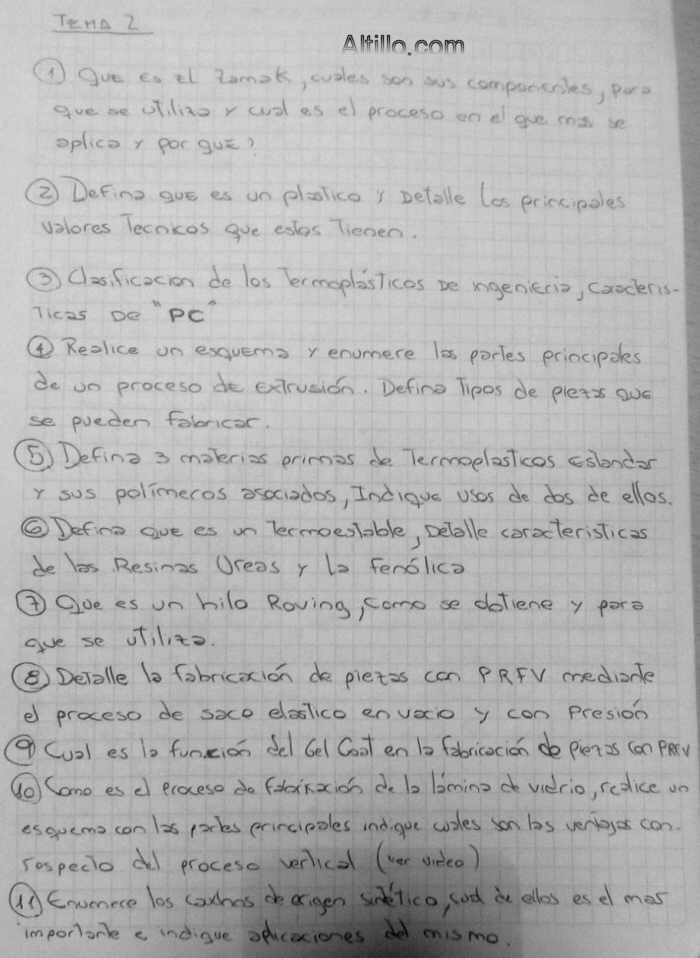 TEMA 2
Altillo.com
① Que es el Zamak, cuales son sus componentes, para
que se utiliza y cual es el proceso en el que mas se
aplica y por que?
② Defina que es un plastico y Detalle los principales
valores Tecnicos que estos Tienen.
③ Clasificacion de los Termoplásticos de ingenieria, caracteris-
ticas DE "PC"
④ Realice un esquema y enumere las partes principales
de un proceso de extrusión. Defina Tipos de piezas que
se pueden fabricar.
⑤ Defina 3 materias primas de Termoplasticos estandar
y sus polímeros asociados, Indique usos de dos de ellos.
⑥ Defina que es un Termoestable, Detalle caracteristicas
de las Resinas Ureas y la Fenólica
⑦ Que es un hilo Roving, como se obtiene y para
que se utiliza.
⑧ Detalle la fabricación de piezas con PRFV mediante
el proceso de saco elastico en vacio y con Presión
⑨ Cual es la función del Gel Coat en la fabricación de piezas con PRFV
⑩ Como es el proceso de fabricación de la lámina de vidrio, realice un
esquema con las partes principales indique cuales son las ventajas con
respecto del proceso vertical (ver video)
⑪ Enumere los cauchos de origen sintético, cual de ellos es el mas
importante e indique aplicaciones del mismo.